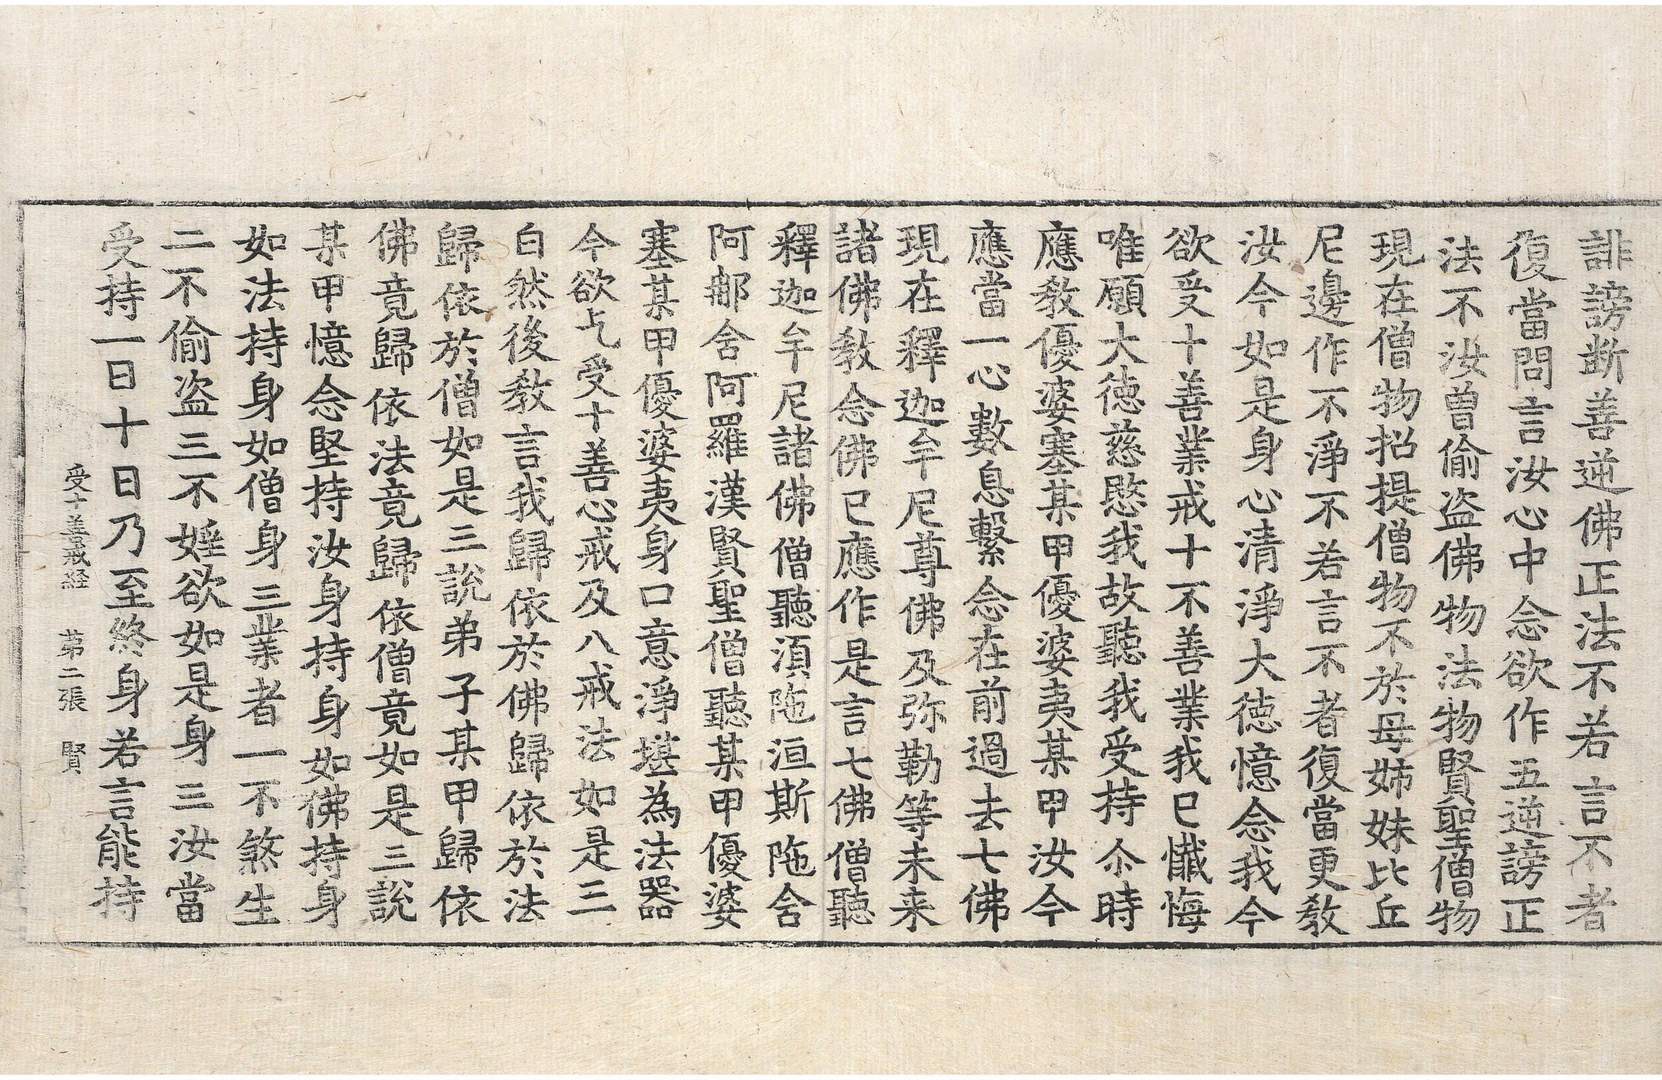 誹謗断善逆佛正法不若言不者
復當問言汝心中念欲作五逆謗正
法不汝曾偷盗佛物法物賢聖僧物
現在僧物招提僧物不於母姊妹比丘
尼邊作不淨不若言不者復當更教
汝今如是身心清淨大徳憶念我今
欲受十善業戒十不善業我已懺悔
唯願大徳慈愍我故聽我受持尒時
應教優婆塞某甲優婆夷某甲汝今
應當一心數息繫念在前過去七佛
現在釋迦牟尼尊佛及弥勒等未来
諸佛教念佛已應作是言七佛僧聽
釋迦牟尼諸佛僧聽湏陁洹斯陁含
阿郍舍阿羅漢賢聖僧聽某甲優婆
塞某甲優婆夷身口意淨堪為法器
今欲乞受十善心戒及八戒法如是三
白然後教言我歸依於佛歸依於法
歸依於僧如是三説弟子某甲歸依
佛竟歸依法竟歸依僧竟如是三説
某甲憶念堅持汝身持身如佛持身
如法持身如僧身三業者一不煞生
二不偷盗三不婬欲如是身三汝當
受持一日十日乃至終身若言能持
受十善戒経 苐二張 賢